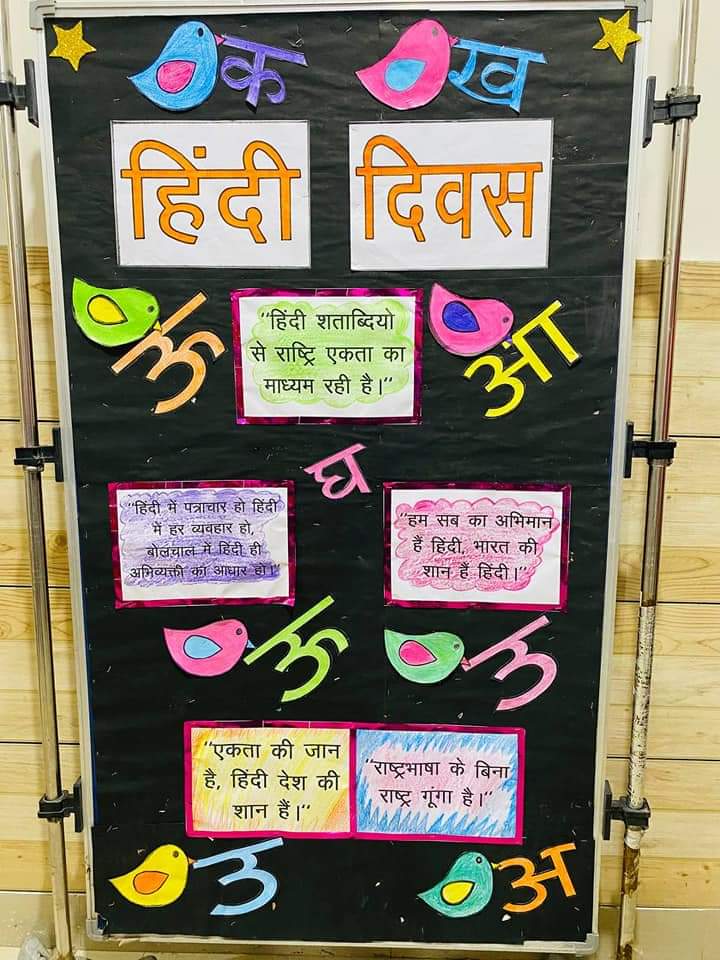 क ख
हिंदी दिवस
ऊ
"हिंदी शताब्दियो
से राष्ट्रि एकता का
माध्यम रही है।"
आ
घ
"हिंदी में पत्राचार हो हिंदी
में हर व्यवहार हो,
बोलचाल में हिंदी ही
अभिव्यक्ती का आधार हो।"
"हम सब का अभिमान
हैं हिंदी, भारत की
शान हैं हिंदी।"
ऊ
उ
"एकता की जान
है, हिंदी देश की
शान हैं।"
"राष्ट्रभाषा के बिना
राष्ट्र गूंगा है।"
उ
अ